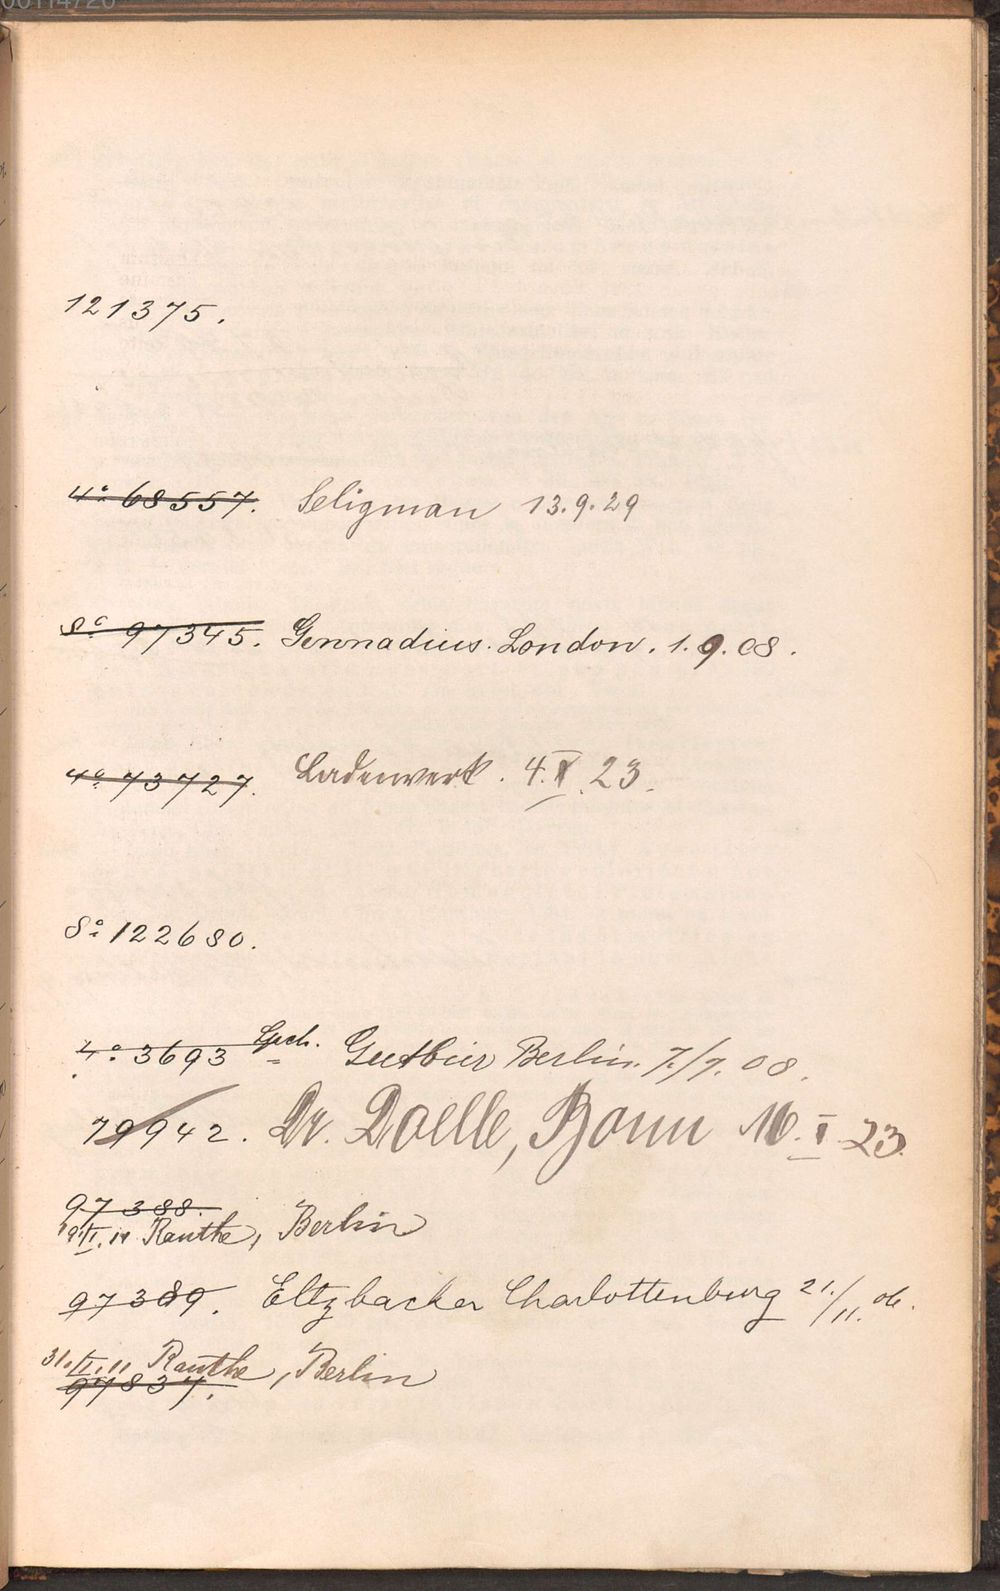 121375.
4° 68557. Seligman 13.9.29
8° 97345. Gennadius. London. 1.9.08.
4° 73727. Ladenwerk. 4.X.23.
8° 122680.
4° 3693 Guthier Berlin. 7./7. 08.
79942. Dr. Doelle, Bonn 16.I.23.
97388.
Rauthe, Berlin
97389. Eltzbacher Charlottenburg 21./11. 06.
31. Rauthe, Berlin
97837.